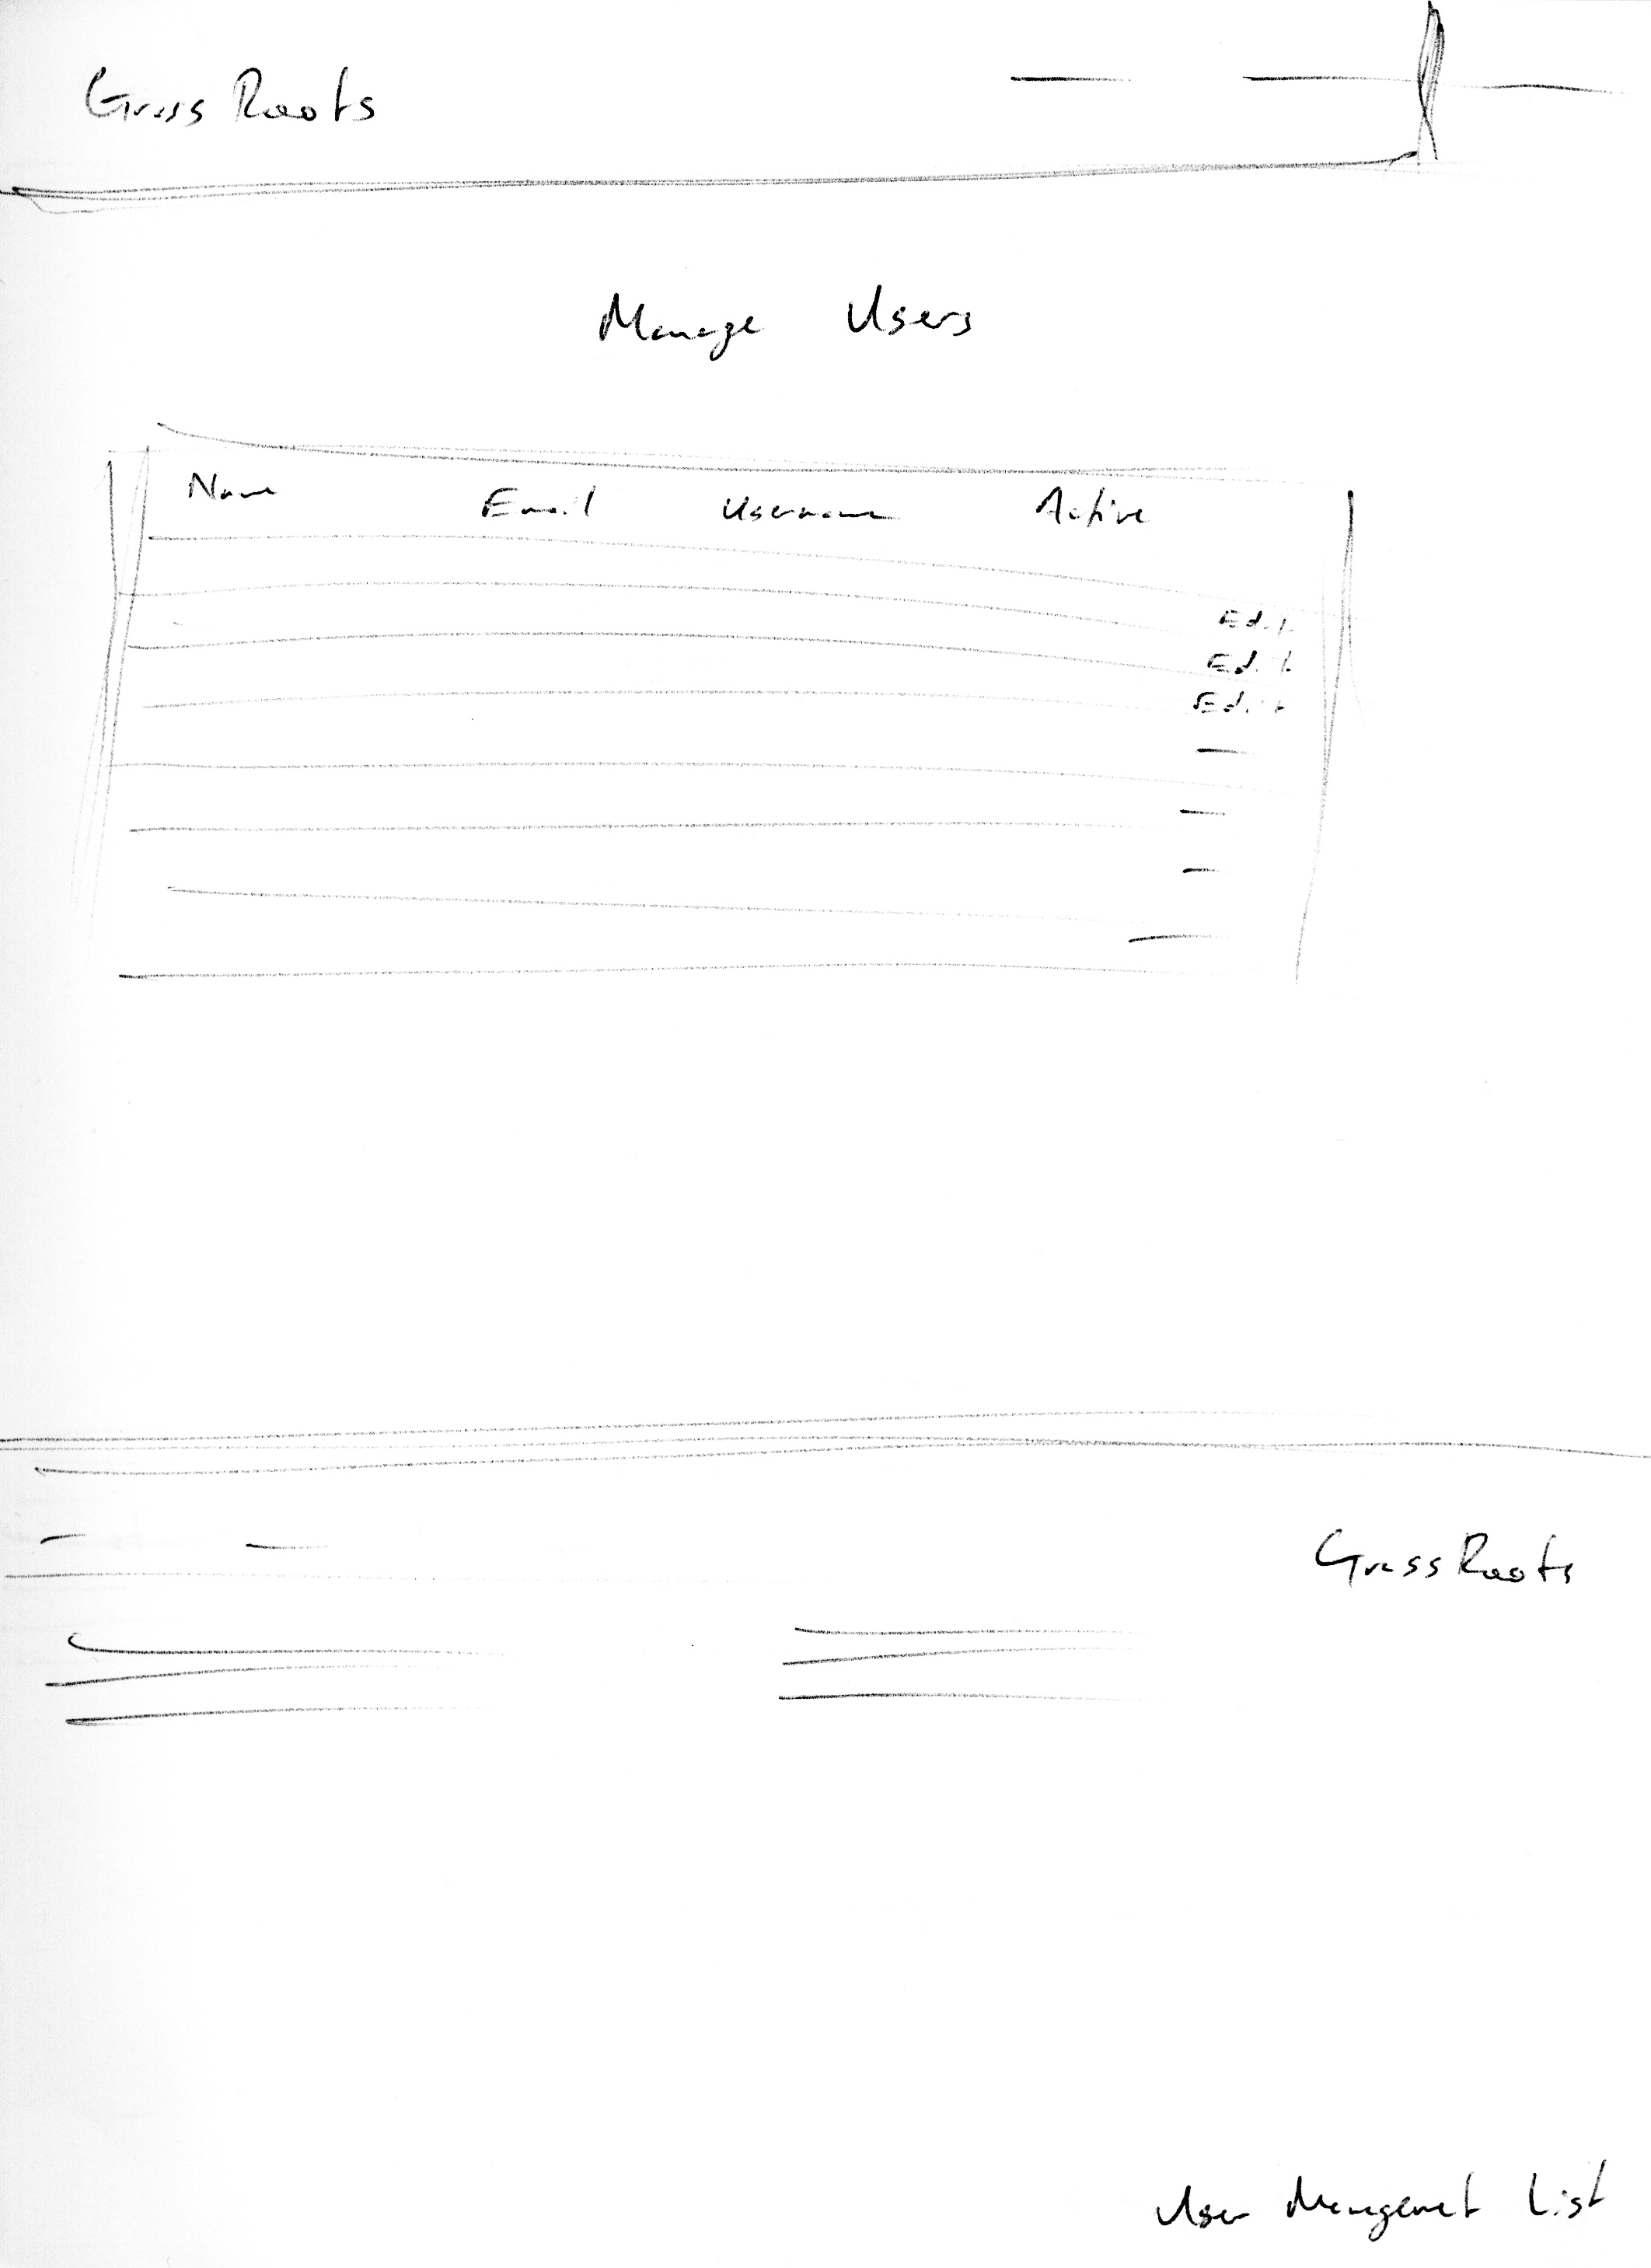 Grass Roots
Manage Users
Name Email Username Active
Edit
Edit
Edit
Grass Roots
User Management List